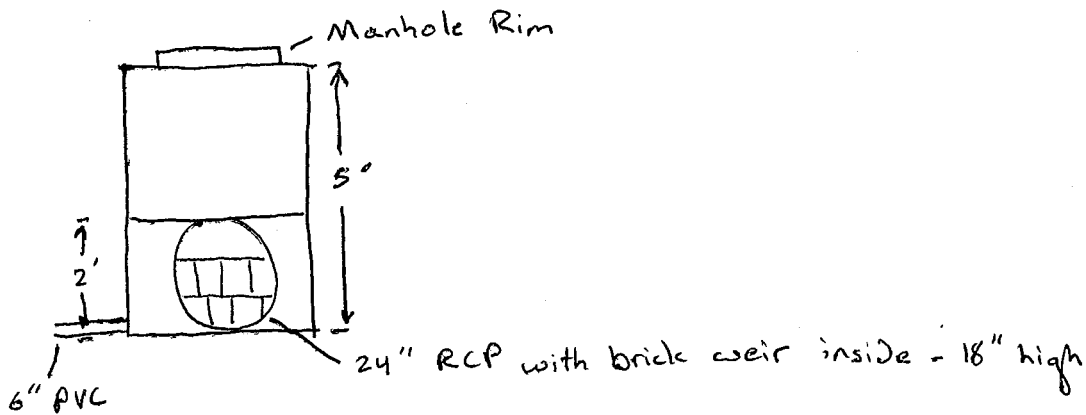 Manhole Rim
5'
2'
24" RCP with brick weir inside - 18" high
6" PVC